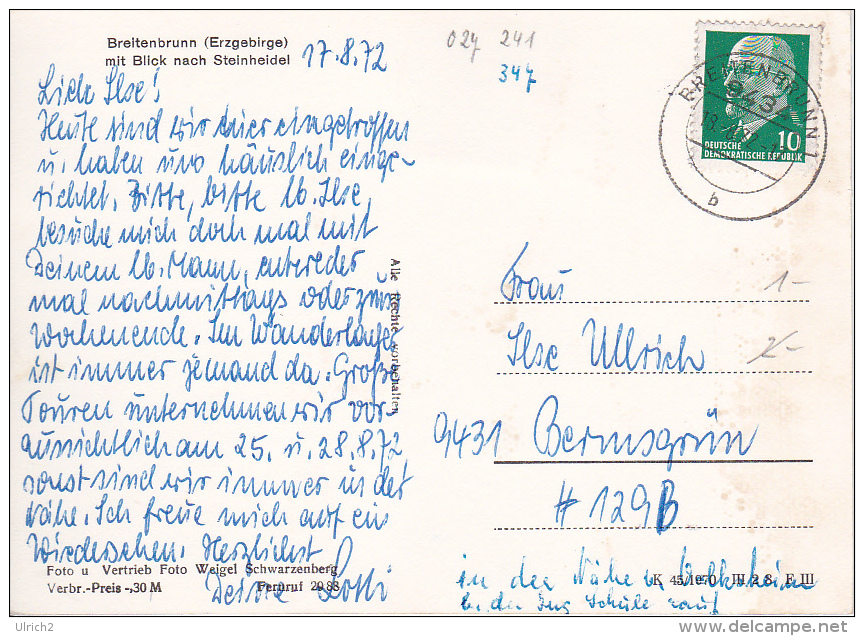 Breitenbrunn (Erzgebirge)
mit Blick nach Steinheidel
17.8.72
Liebe Ilse!
Heute sind wir hier eingetroffen
u. haben uns häuslich einge-
richtet. Bitte, bitte lb. Ilse,
besuche mich doch mal mit
Deinem lb. Mann, entweder
mal nachmittags oder zum
Wochenende. Im Wanderlager
ist immer jemand da. Große
Touren unternehmen wir vor-
aussichtlich am 25. u. 28.8.72
sonst sind wir immer in der
Nähe. Ich freue mich auf ein
Wiedersehen. Herzlichst
Deine Lotti
Foto u Vertrieb Foto Weigel Schwarzenberg
Verbr.-Preis -,30 M
Fernruf 2988
Alle Rechte vorbehalten
024 241
347
BREITENBRUNN 1
b
10
DEUTSCHE
DEMOKRATISCHE REPUBLIK
Frau
1-
Ilse Ullrich
2-
9431 Bermsgrün
# 129B
K 45/1970 III 2 8 F III
in der Nähe v.
b. der Ing Schule rauf
Ulrich2
www.delcampe.net